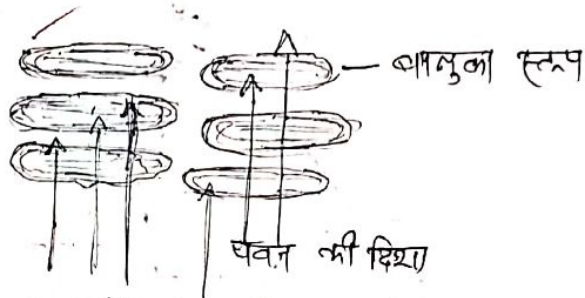 बालुका स्तूप
पवन की दिशा